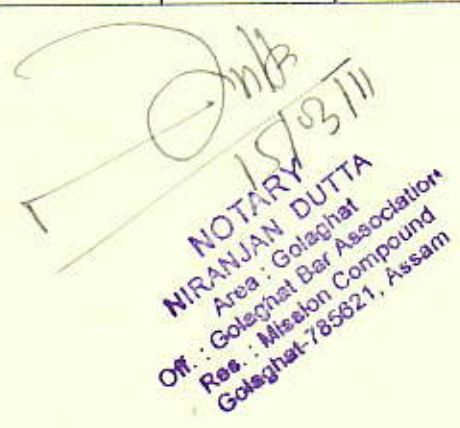 Dutta
15/03/11
NOTARY
NIRANJAN DUTTA
Area : Golaghat
Off. : Golaghat Bar Association
Res. : Mission Compound
Golaghat-785621, Assam